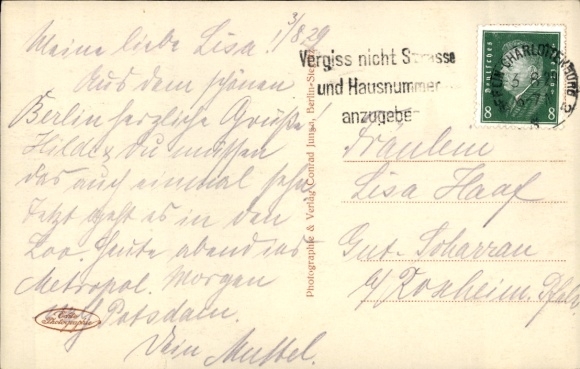 Meine liebe Lisa! 3/8 29
Aus dem schönen
Berlin herzliche Grüße!
Hilde & du müssen
das auch einmal sehn
Jetzt geht es in den
Zoo. Heute abend ins
Metropol. Morgen
Potsdam.
Dein
Photographie & Verlag Conrad Junga, Berlin-Steglitz
Vergiss nicht Strasse
und Hausnummer
anzugebe
CHARLOTTENBURG 2
Deutsches
8 8
Fräulein
Lisa Haaf
Gut Scharrau
b/ Roxheim. Pfalz
Echte
Photographie